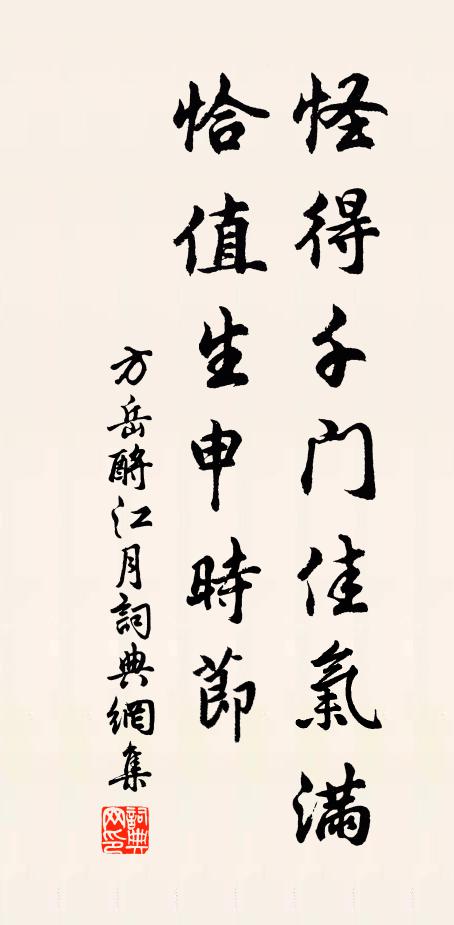 怪得千門佳氣滿
恰值生申時節
方岳酹江月詞典網集
詞典網印